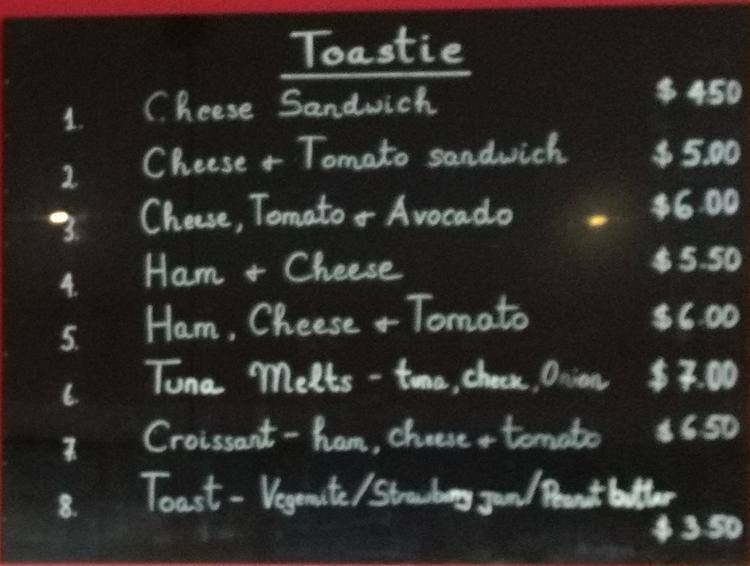 Toastie
1. Cheese Sandwich $ 4.50
2. Cheese + Tomato sandwich $ 5.00
3. Cheese, Tomato + Avocado $6.00
4. Ham + Cheese $5.50
5. Ham, Cheese + Tomato $6.00
6. Tuna Melts - tuna, cheese, Onion $7.00
7. Croissant - ham, cheese + tomato $6.50
8. Toast - Vegemite/Strawberry jam/Peanut butter
$3.50